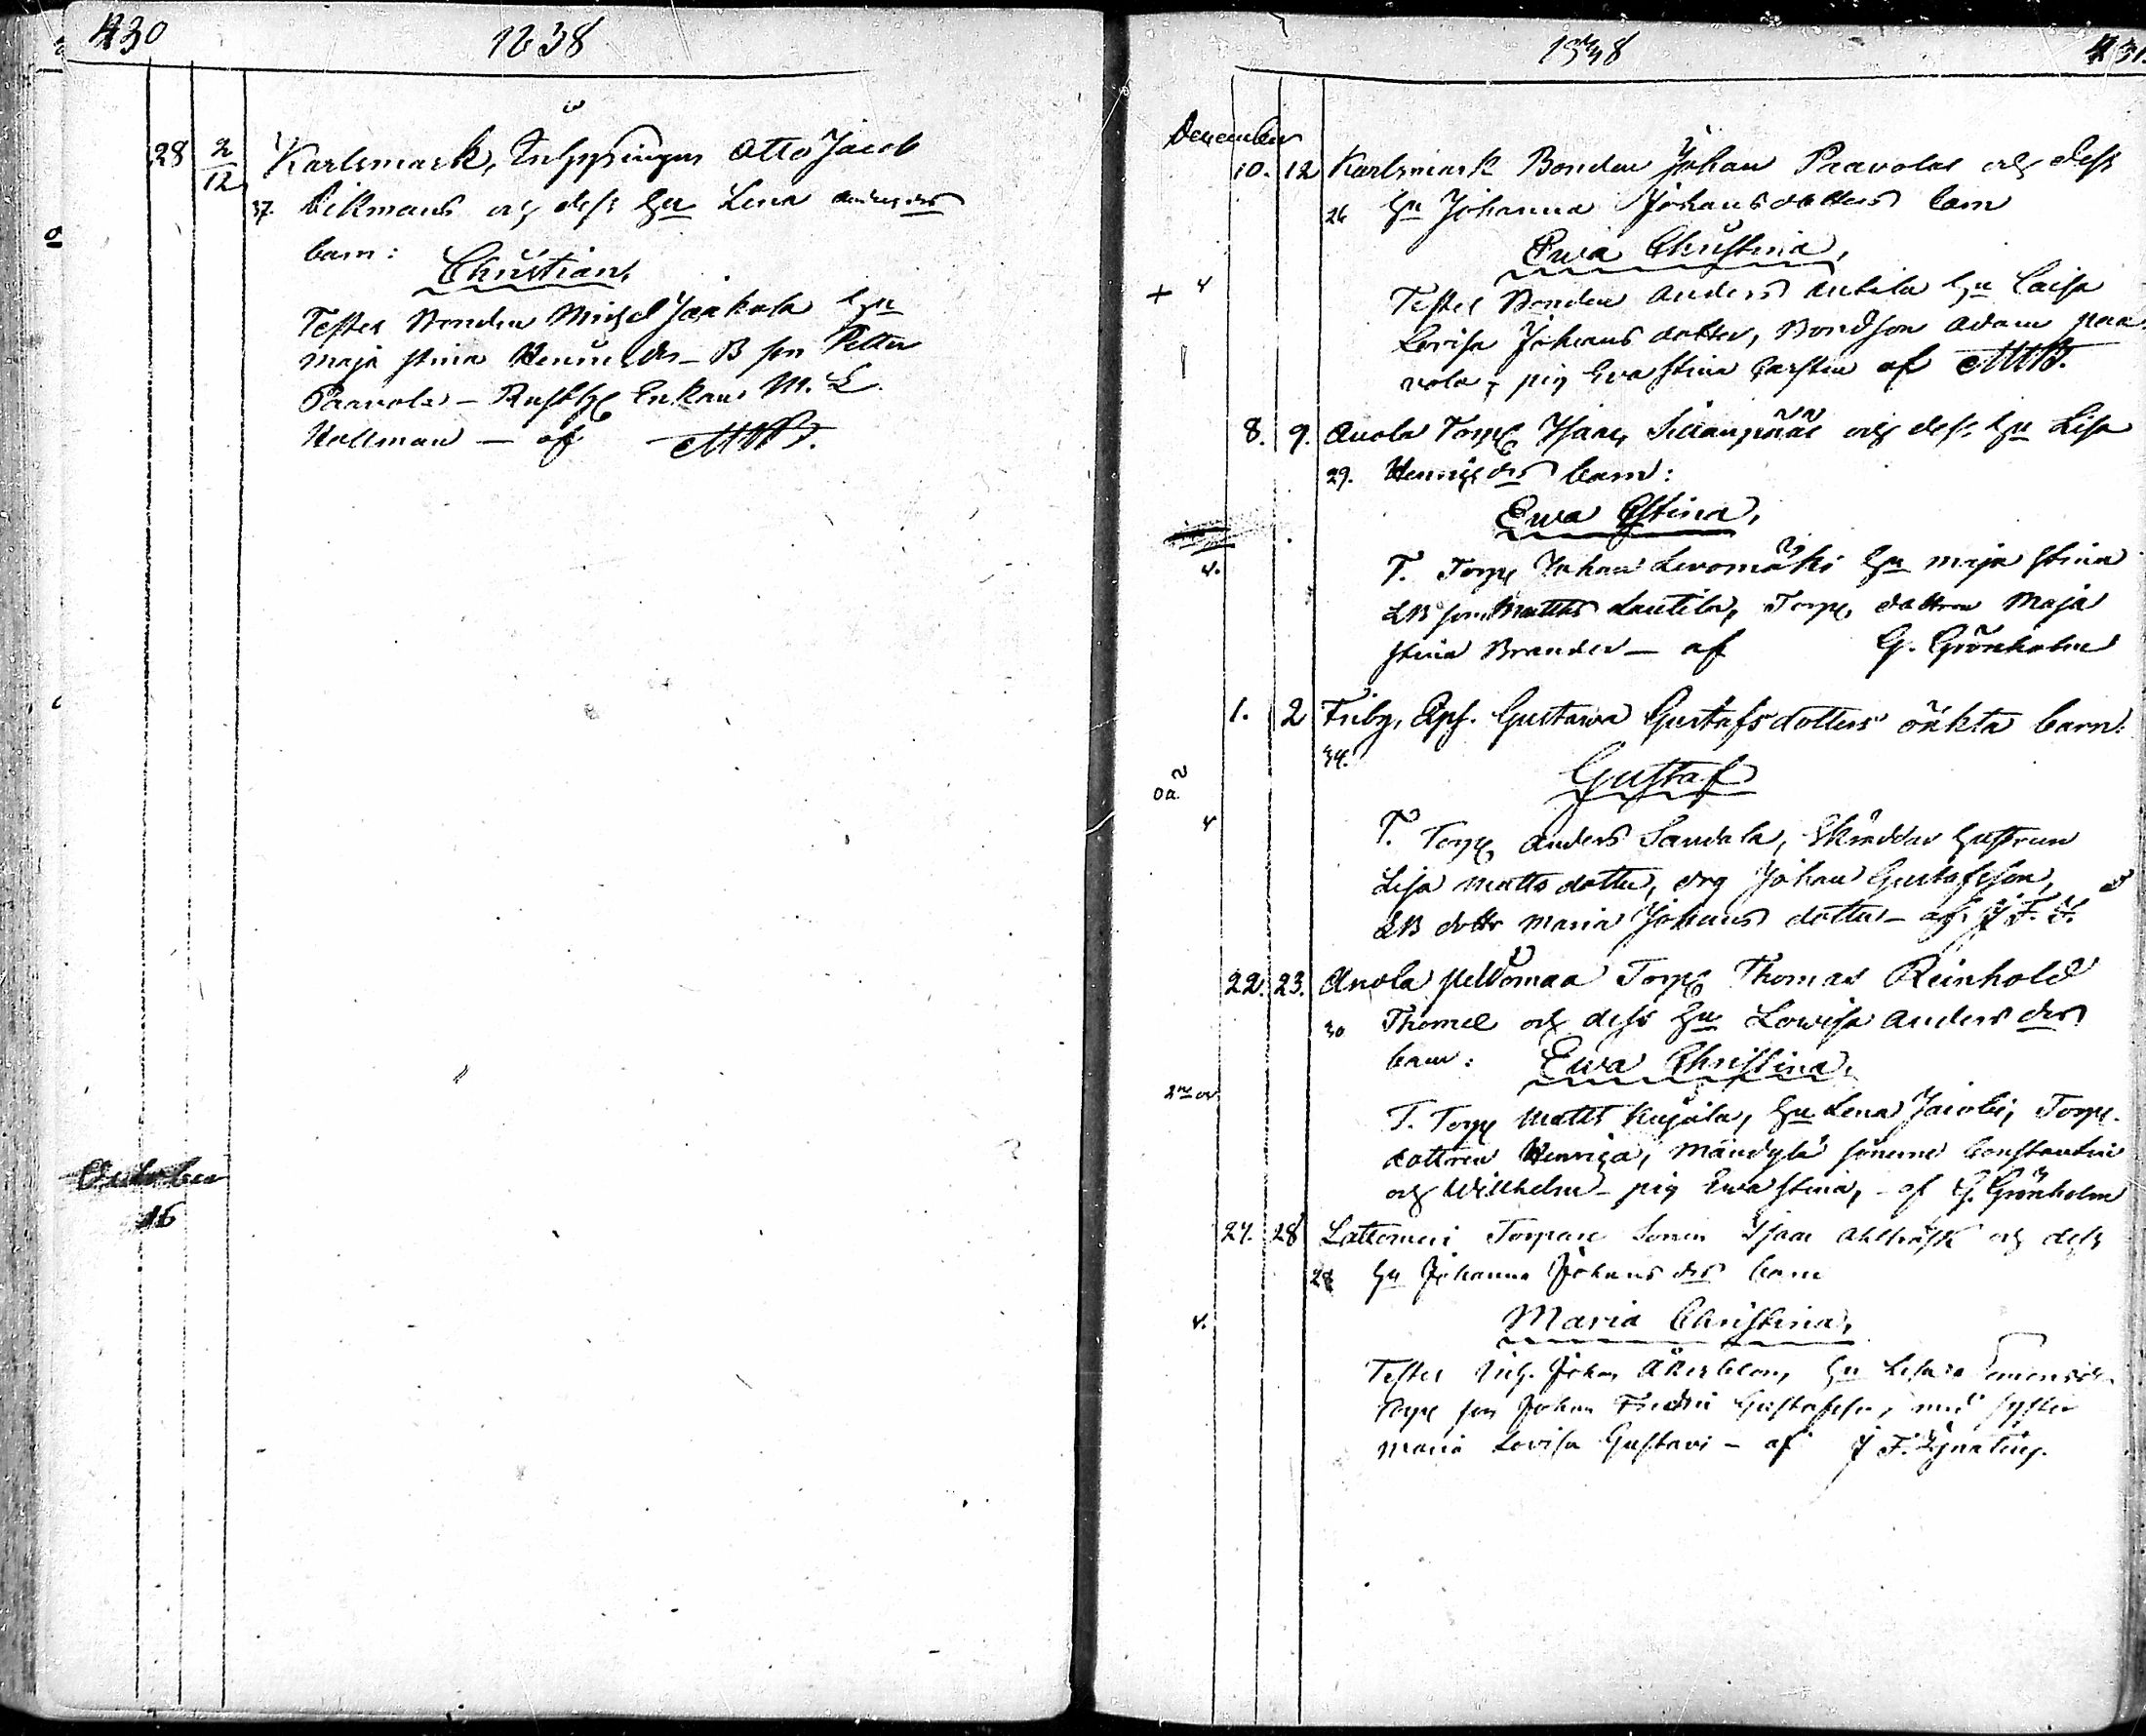 430
1838
28 2/12 Karlsmark, Otto Jacob
37. Dikmans och dess hu Lena Anders dr
barn:
Christian,
Testes Bonden Michel Jaakola hu
Maja Stina Henrics dr - B son Petter
Paavola - Rusth Enkan M. L.
Hellman - af
October
16
1838
431.
December
10. 12 Karlsmark Bonden Johan Paavolas och dess
26 hu Johanna Johansdotters barn
Ewa Christina,
+ v
Testes Bonden Anders Antila hu Caisa
Lovisa Johans dotter, Bondson Adam Paa
vola, pig Eva Stina af
8. 9. Anola Torp Isaac Sillanpää och dess hu Lisa
29. Henrics drs barn:
Ewa Stina,
v.
T. Torp Johan Levomäki hu Maja Stina
LB son Matths Lautila, Torp dottren Maja
Stina Brander - af G. Grönholm
1. 2 Friby, Gustava Gustafsdotters oäkta barn:
34.
Gustaf
oä
v
T. Torp Anders Sandala, Skräddar hustrun
Lisa Matts dotter, drg Johan Gustafsson,
LB dottr Maria Johans dotter - af J F. I.
22. 23. Anola Peldomaa Torp Thomas Reinhold
30 Thomel och dess hu Lovisa Anders drs
barn: Ewa Christina,
T. Torp Matts Kujala, hu Lena Jacobi, Torp.
dottren Henrica, Mandylä sönerne Constantin
och Wilhelm - pig Ewa Stina, - af G. Grönholm
27. 28 Lattomeri Torpare Sonen Isaac och dess
28 hu Johanna Johans drs barn
Maria Christina,
v.
Testes Johan Åkerblom, hu Lisa
Torp son Johan Fredric Gustafsson, med syster
Maria Lovisa Gustavi - af J F. Ignatius.